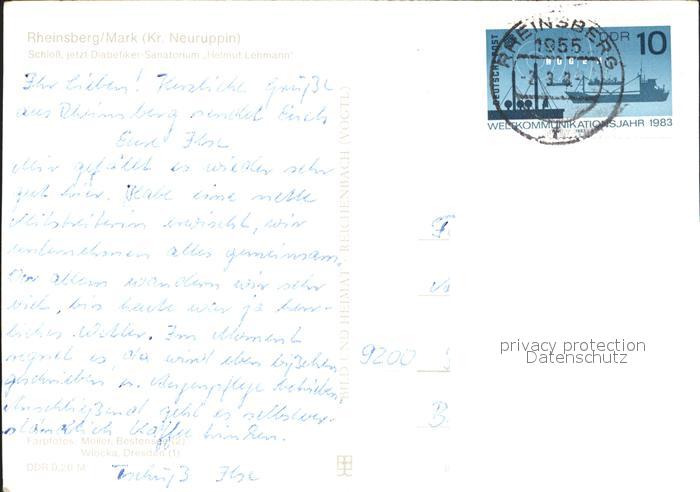 Rheinsberg/Mark (Kr. Neuruppin)
Schloß, jetzt Diabetiker-Sanatorium „Helmut Lehmann"
Ihr Lieben! Herzliche Grüße
aus Rheinsberg sendet Euch
Eure Ilse
Mir gefällt es wieder sehr
gut hier. Habe eine nette
Mitstreiterin erwischt, wir
unternehmen alles gemeinsam.
Vor allem wandern wir sehr
viel, bis heute war ja herr-
liches Wetter. Im Moment
regnet es, da wird eben bißchen
geschrieben u. Augenpflege betrieben.
Anschließend geht es selbstver-
ständlich Kaffee trinken.
Tschüß Ilse
Farbfotos: Möller, Bestensee (2)
Wlocka, Dresden (1)
DDR 0,20 M
BILD UND HEIMAT REICHENBACH (VOGTL)
RHEINSBERG
1955
DEUTSCHE POST
DDR 10
WELTKOMMUNIKATIONSJAHR 1983
9200
privacy protection
Datenschutz